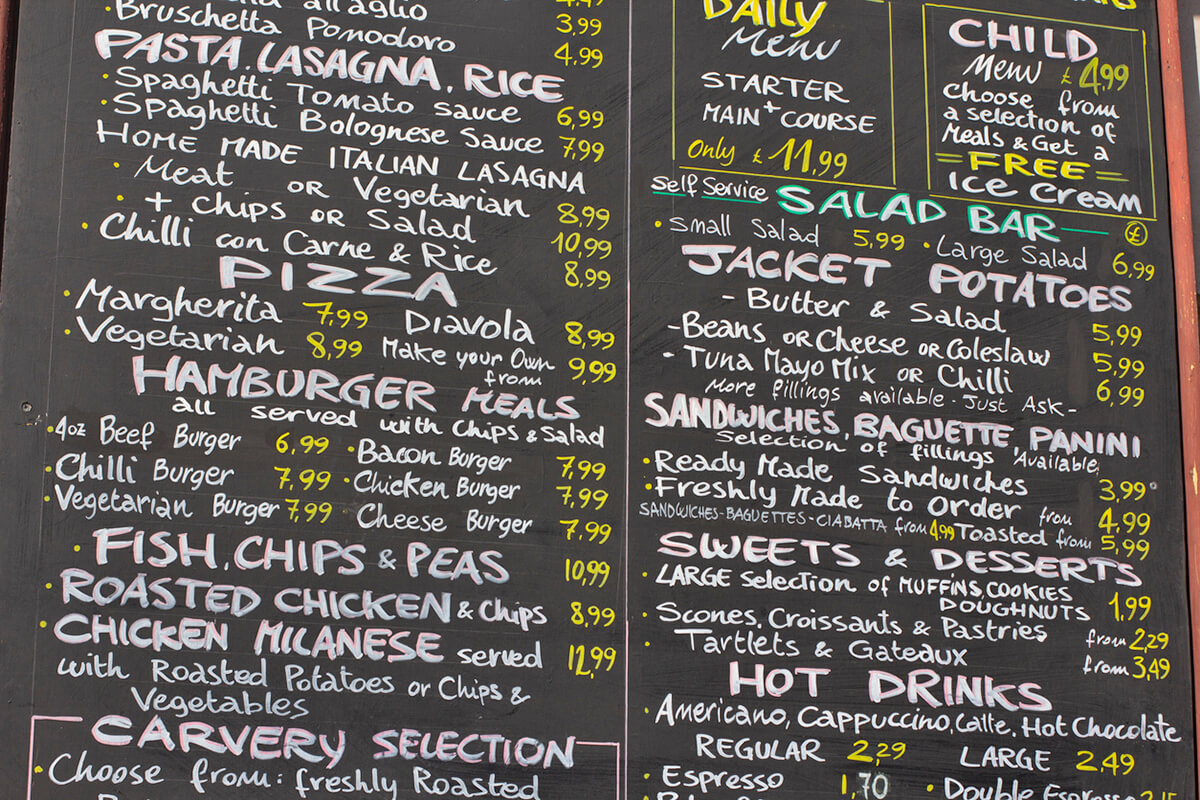 all'aglio 4,49
• Bruschetta Pomodoro 3,99
4,99
PASTA, LASAGNA, RICE
• Spaghetti Tomato sauce 6,99
• Spaghetti Bolognese Sauce 7,99
HOME MADE ITALIAN LASAGNA
• Meat OR Vegetarian 8,99
• + chips OR Salad 10,99
• Chilli con Carne & Rice 8,99
PIZZA
• Margherita 7,99 DIAVOLA 8,99
• Vegetarian 8,99 Make your Own from 9,99
HAMBURGER MEALS
all served with Chips & Salad
• 4oz Beef Burger 6,99 • Bacon Burger 7,99
• Chilli Burger 7,99 • Chicken Burger 7,99
• Vegetarian Burger 7,99 Cheese Burger 7,99
• FISH, CHIPS & PEAS 10,99
• ROASTED CHICKEN & Chips 8,99
• CHICKEN MILANESE served 12,99
with Roasted Potatoes or Chips &
Vegetables
CARVERY SELECTION
• Choose from: freshly Roasted
DAILY
Menu
STARTER
+
MAIN COURSE
Only £ 11,99
CHILD
Menu £ 4,99
choose from
a selection of
Meals & Get a
= FREE =
Ice Cream
Self Service SALAD BAR £
• Small Salad 5,99 • Large Salad 6,99
JACKET POTATOES
- Butter & Salad 5,99
- Beans OR Cheese OR Coleslaw 5,99
- Tuna Mayo Mix OR Chilli 6,99
More fillings available - Just Ask -
SANDWICHES, BAGUETTE, PANINI
Selection of fillings Available
• Ready Made Sandwiches 3,99
• Freshly Made to Order from 4,99
SANDWICHES - BAGUETTES - CIABATTA from 4,99 Toasted from 5,99
SWEETS & DESSERTS
• LARGE selection of MUFFINS, COOKIES
DOUGHNUTS 1,99
• Scones, Croissants & Pastries from 2,29
• Tartlets & Gateaux from 3,49
HOT DRINKS
• Americano, Cappuccino, Latte, Hot Chocolate
REGULAR 2,29 LARGE 2,49
• Espresso 1,70 • Double Espresso 2,15